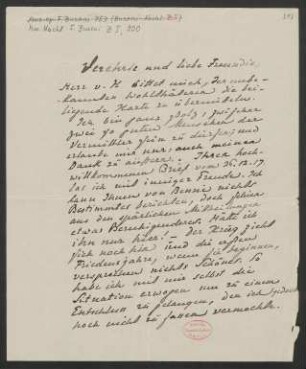 Mus. Nachl. F. Busoni B I, 300
Verehrte und liebe Freundin,
Herr v. H bittet mich, der unbe-
kannten Wohlthäterin die bei-
liegende Karte zu übermitteln.
Ich bin ganz stolz, zwischen
zwei so guten Menschen der
Vermittler sein zu dürfen; und
erlaube mir nur, auch meinen
Dank zu äussern. – Ihren hoch-
willkommenen Brief vom 26.12.17.
las ich mit inniger Freude. Ich
kann Ihnen von Bennie nichts
Bestimmtes berichten, doch schien
aus den spärlichen Mitteilungen
etwas Beruhigenderes. Hätte ich
ihn nur hier! – Der Krieg zieht
sich noch hin und die ersten
Friedensjahre, wenn sie beginnen,
versprechen nichts Schönes. So
habe ich mit mir selbst die
Situation erwogen um zu einem
Entschluss zu gelangen, den ich jedoch
noch nicht zu fassen vermochte.